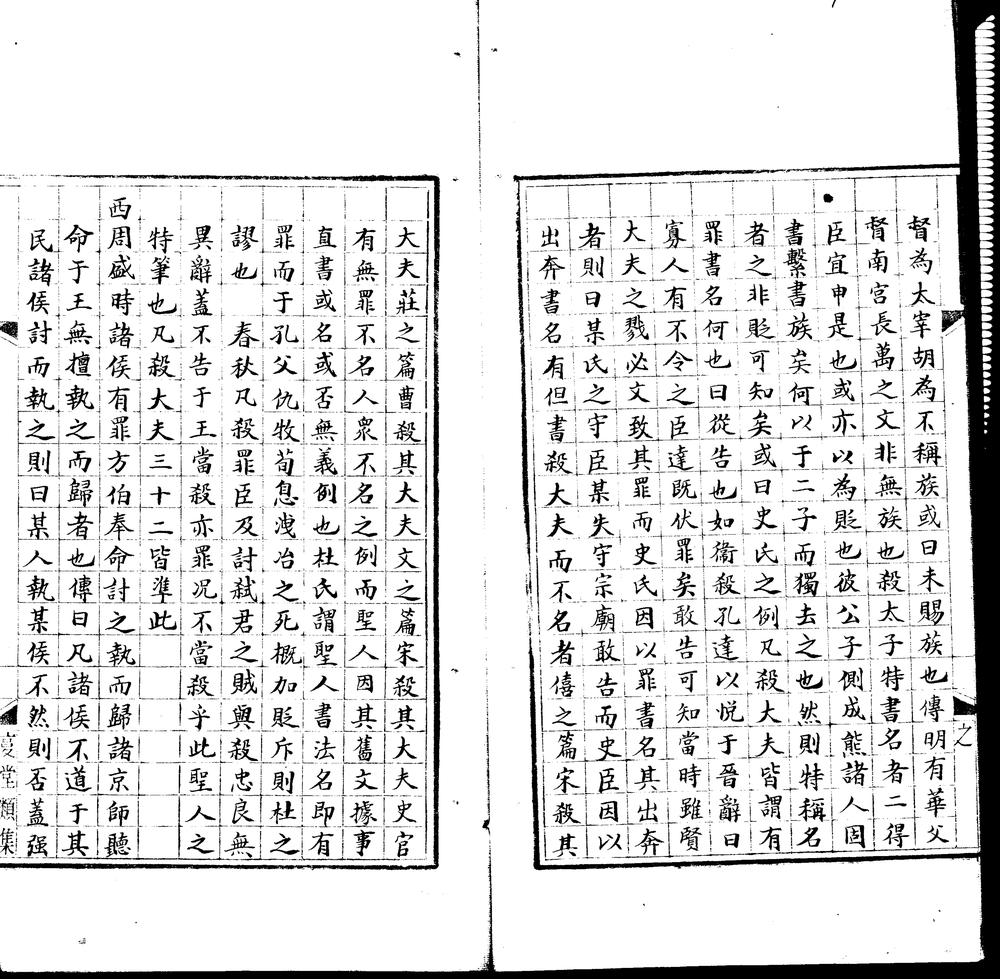 督為太宰胡為不稱族或曰未賜族也傳明有華父
督南宮長萬之文非無族也殺太子特書名者二得
臣宜申是也或亦以為貶也彼公子側成熊諸人固
書繫書族矣何以于二子而獨去之也然則特稱名
者之非貶可知矣或曰史氏之例凡殺大夫皆謂有
罪書名何也曰從告也如衞殺孔達以悅于晉辭曰
寡人有不令之臣達既伏罪矣敢告可知當時雖賢
大夫之戮必文致其罪而史氏因以罪書名其出奔
者則曰某氏之守臣某失守宗廟敢告而史臣因以
出奔書名有但書殺大夫而不名者僖之篇宋殺其
大夫莊之篇曹殺其大夫文之篇宋殺其大夫史官
有無罪不名人衆不名之例而聖人因其舊文據事
直書或名或否無義例也杜氏謂聖人書法名即有
罪而于孔父仇牧荀息洩冶之死概加貶斥則杜之
謬也　春秋凡殺罪臣及討弑君之賊與殺忠良無
異辭蓋不告于王當殺亦罪况不當殺乎此聖人之
特筆也凡殺大夫三十二皆準此
西周盛時諸侯有罪方伯奉命討之執而歸諸京師聽
命于王無擅執之而歸者也傳曰凡諸侯不道于其
民諸侯討而執之則曰某人執某侯不然則否蓋强
堂類集
之